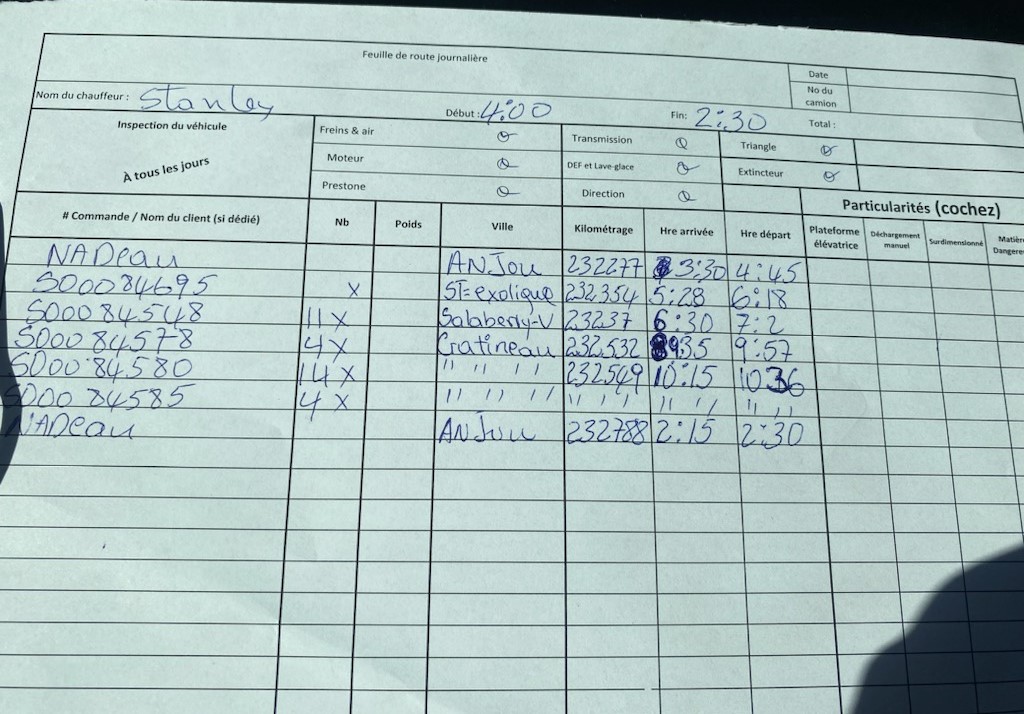 Feuille de route journalière
Date
No du camion
Nom du chauffeur : Stanley Début : 4:00 Fin: 2:30 Total :
Inspection du véhicule
À tous les jours
Freins & air Transmission Triangle
Moteur DEF et Lave-glace Extincteur
Prestone Direction
Particularités (cochez)
# Commande / Nom du client (si dédié) Nb Poids Ville Kilométrage Hre arrivée Hre départ Plateforme élévatrice Déchargement manuel Surdimensionné Matièr Dangere
NADeau ANJou 232277 3:30 4:45
SO0084695 X ST=exolique 232354 5:28 6:18
SO0084548 11 X Salaberry-V 23237 6:30 7:2
SO0084578 4 X Gatineau 232532 9:35 9:57
SO0084580 14 X " " " " 232549 10:15 10 36
SO0084585 4 X " " " " " " " " " " " "
NADeau ANJou 232788 2:15 2:30